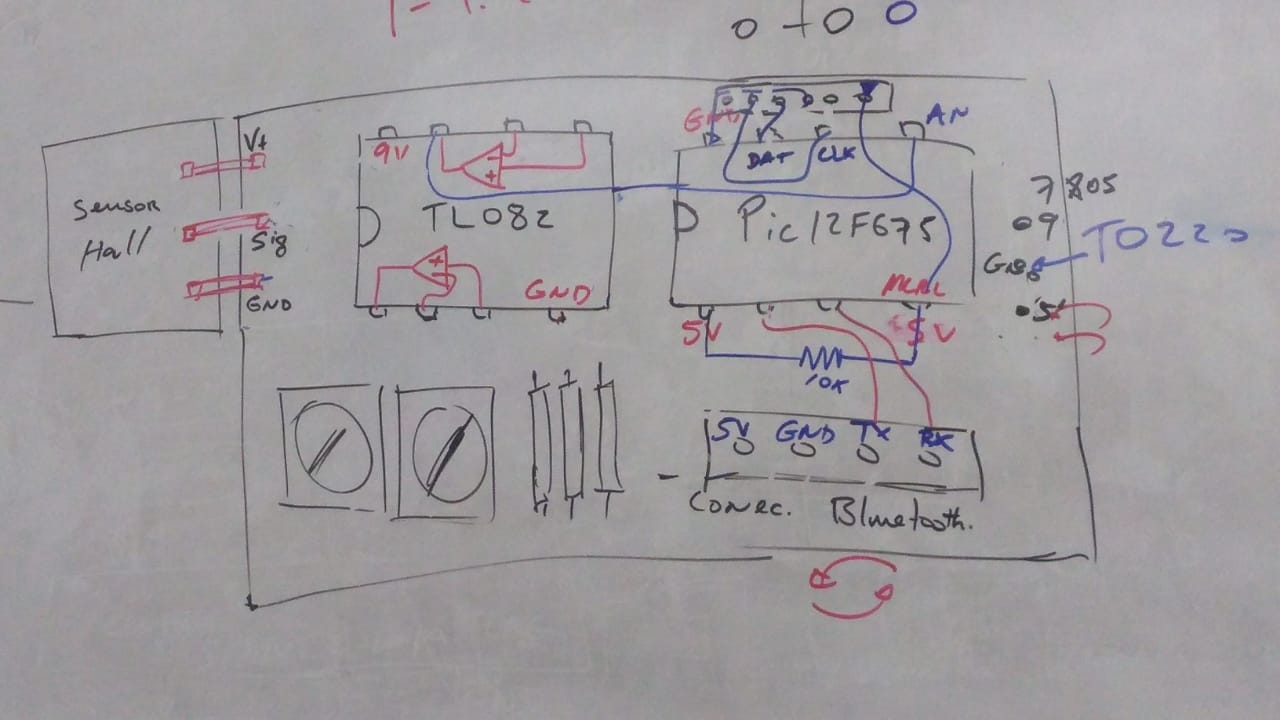 V+
Sensor
Hall
Sig
GND
9V
TL082
GND
GND
AN
DAT
CLK
Pic12F675
MCRL
5V
5V
10K
7805
09
GND
05
TO220
5V GND TX RX
Conec. Bluetooth.